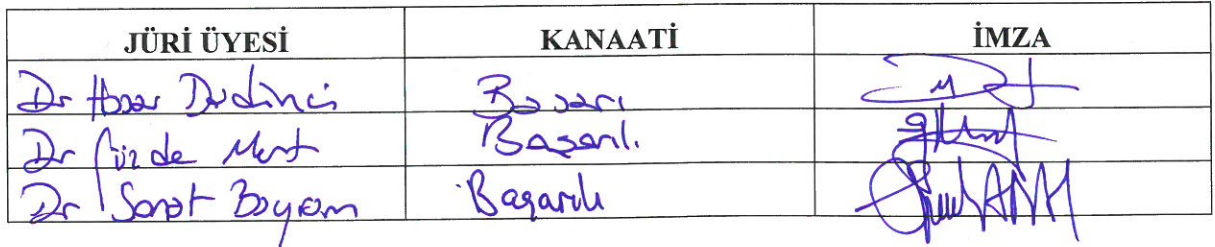 JÜRİ ÜYESİ KANAATİ İMZA
Dr Başarı
Dr Gözde Mert Başarılı
Dr Sanat Bayram Başarılı